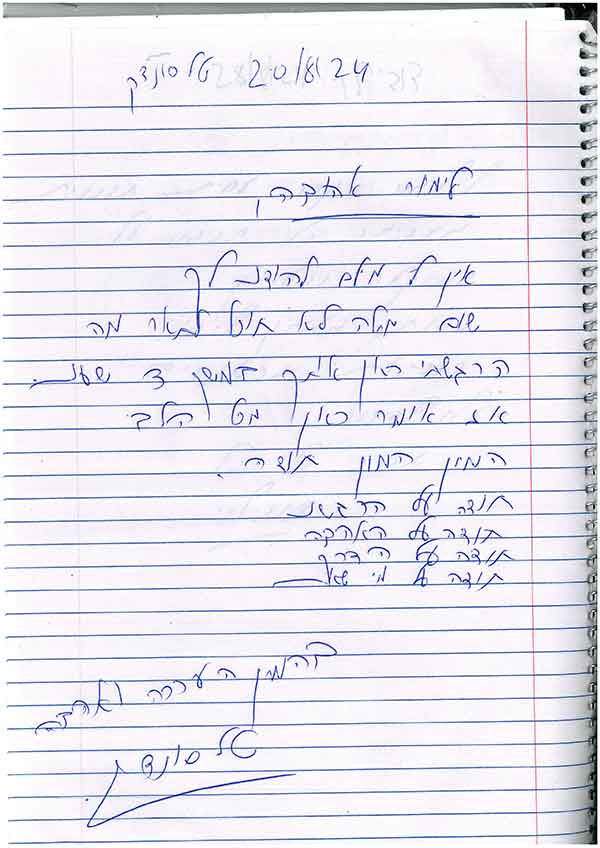 טל סונדק 20/8/24
לימור אהובה
אין לי מילים להודות לך
שום מילה לא תוכל לתאר מה
הרגשתי כאן איתך במשך 3 שעות
אז אומר כאן מכל הלב
המון המון תודה.
תודה על הרגשות
תודה על האהבה
תודה על הדרך
תודה על מי שאת
בהמון הערכה ואהבה
טל סונדק